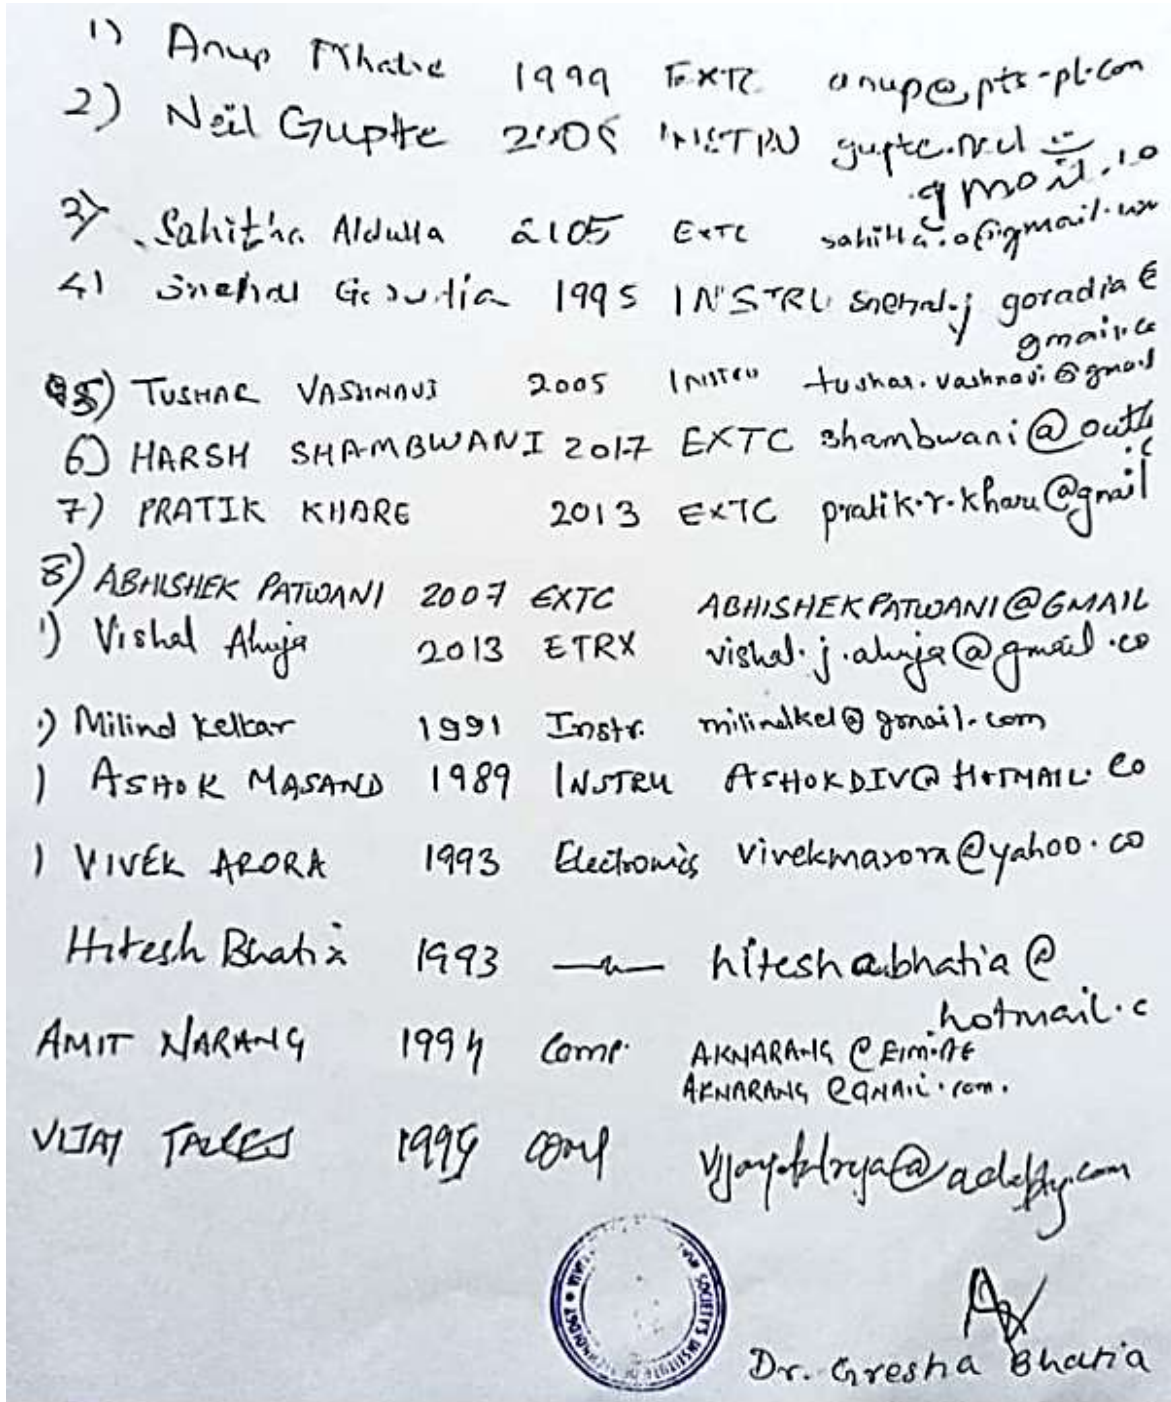 1) Anup Mhatre 1999 EXTC anup@pts-pl.com
2) Neil Gupte INSTRU
gmail.co
3) Sahitha EXTC
4) Snehal Goradia 1995 INSTRU snehal.j goradia@
gmail.co
5) TUSHAR VASHNAVI 2005 INSTRU tushar.vashnavi@gmail
6) HARSH SHAMBWANI 2017 EXTC shambwani@outl
.c
7) PRATIK KHARE 2013 EXTC pratik.r.khare@gmail
8) ABHISHEK PATWANI 2007 EXTC ABHISHEKPATWANI@GMAIL
) Vishal Ahuja 2013 ETRX vishal.j.ahuja@gmail.co
) Milind Kelkar 1991 Instr. milindkel@gmail.com
) ASHOK MASAND 1989 INSTRU ASHOKDIV@HOTMAIL.CO
) VIVEK ARORA 1993 Electronics vivekmarora@yahoo.co
Hitesh Bhatia 1993 —"— hiteshabhatia@
hotmail.c
AMIT NARANG 1994 Comp. AKNARANG @EIM.AE
AKNARANG @GMAIL.com.
VIJAY 1994 COMP
SOCIETY'S INSTITUTE OF
Dr. Gresha Bhatia